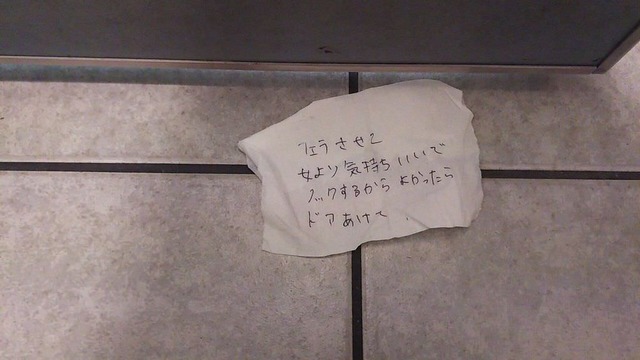 フェラさせて
女より気持ちいいで
ノックするから よかったら
ドアあけて